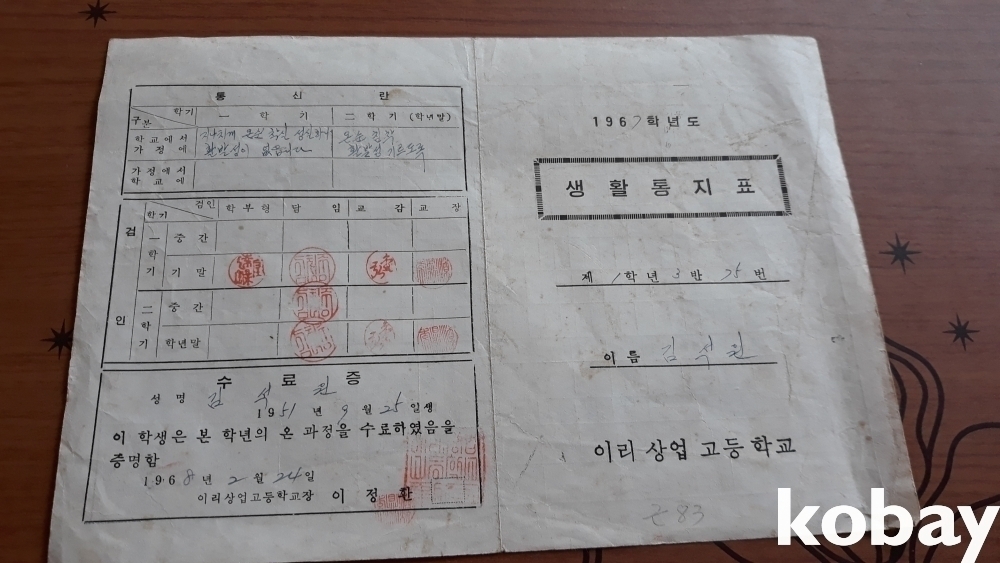 통 신 란
학기
구분
一 학 기
二 학 기 (학년말)
학교에서
가정에
지나치게 온순 착실 성실하나
활발성이 없읍니다
온순 착실
활발성 기르도록
가정에서
학교에
검인
학기
학부형
담 임
교 감
교 장
검 인
一 학 기
중 간
기 말
二 학 기
중 간
학년말
수 료 증
성 명 김 석 원
1951 년 9 월 25 일생
이 학생은 본 학년의 온 과정을 수료하였음을
증명함
1968 년 2 월 24일
이리상업고등학교장 이 정 환
1967학년도
생 활 통 지 표
제 1학년 3 반 25 번
이 름 김 석 원
이리 상업 고등 학교
83
kobay